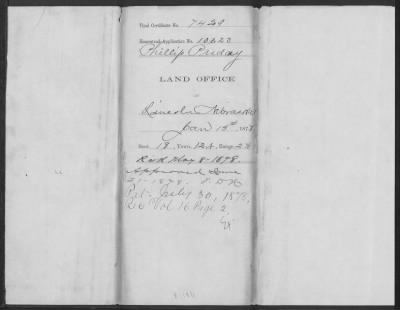 Final Certificate No. 7429
Homestead Application No. 10623
Phillip
LAND OFFICE
at
Lincoln Nebraska
Jan 15th 1878
Sect. 18, Town. 12 N, Range 2
Rec'd May 8-1878.
Approved June
21-1878.
Pat. July 30, 1878,
Vol 16 Page 2.